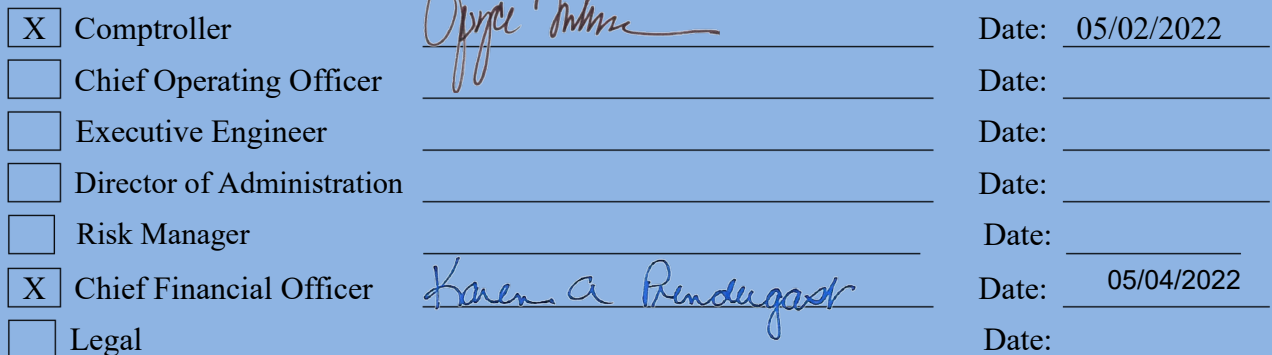 X Comptroller Date: 05/02/2022
Chief Operating Officer Date:
Executive Engineer Date:
Director of Administration Date:
Risk Manager Date:
X Chief Financial Officer Karen A Prendergast Date: 05/04/2022
Legal Date: